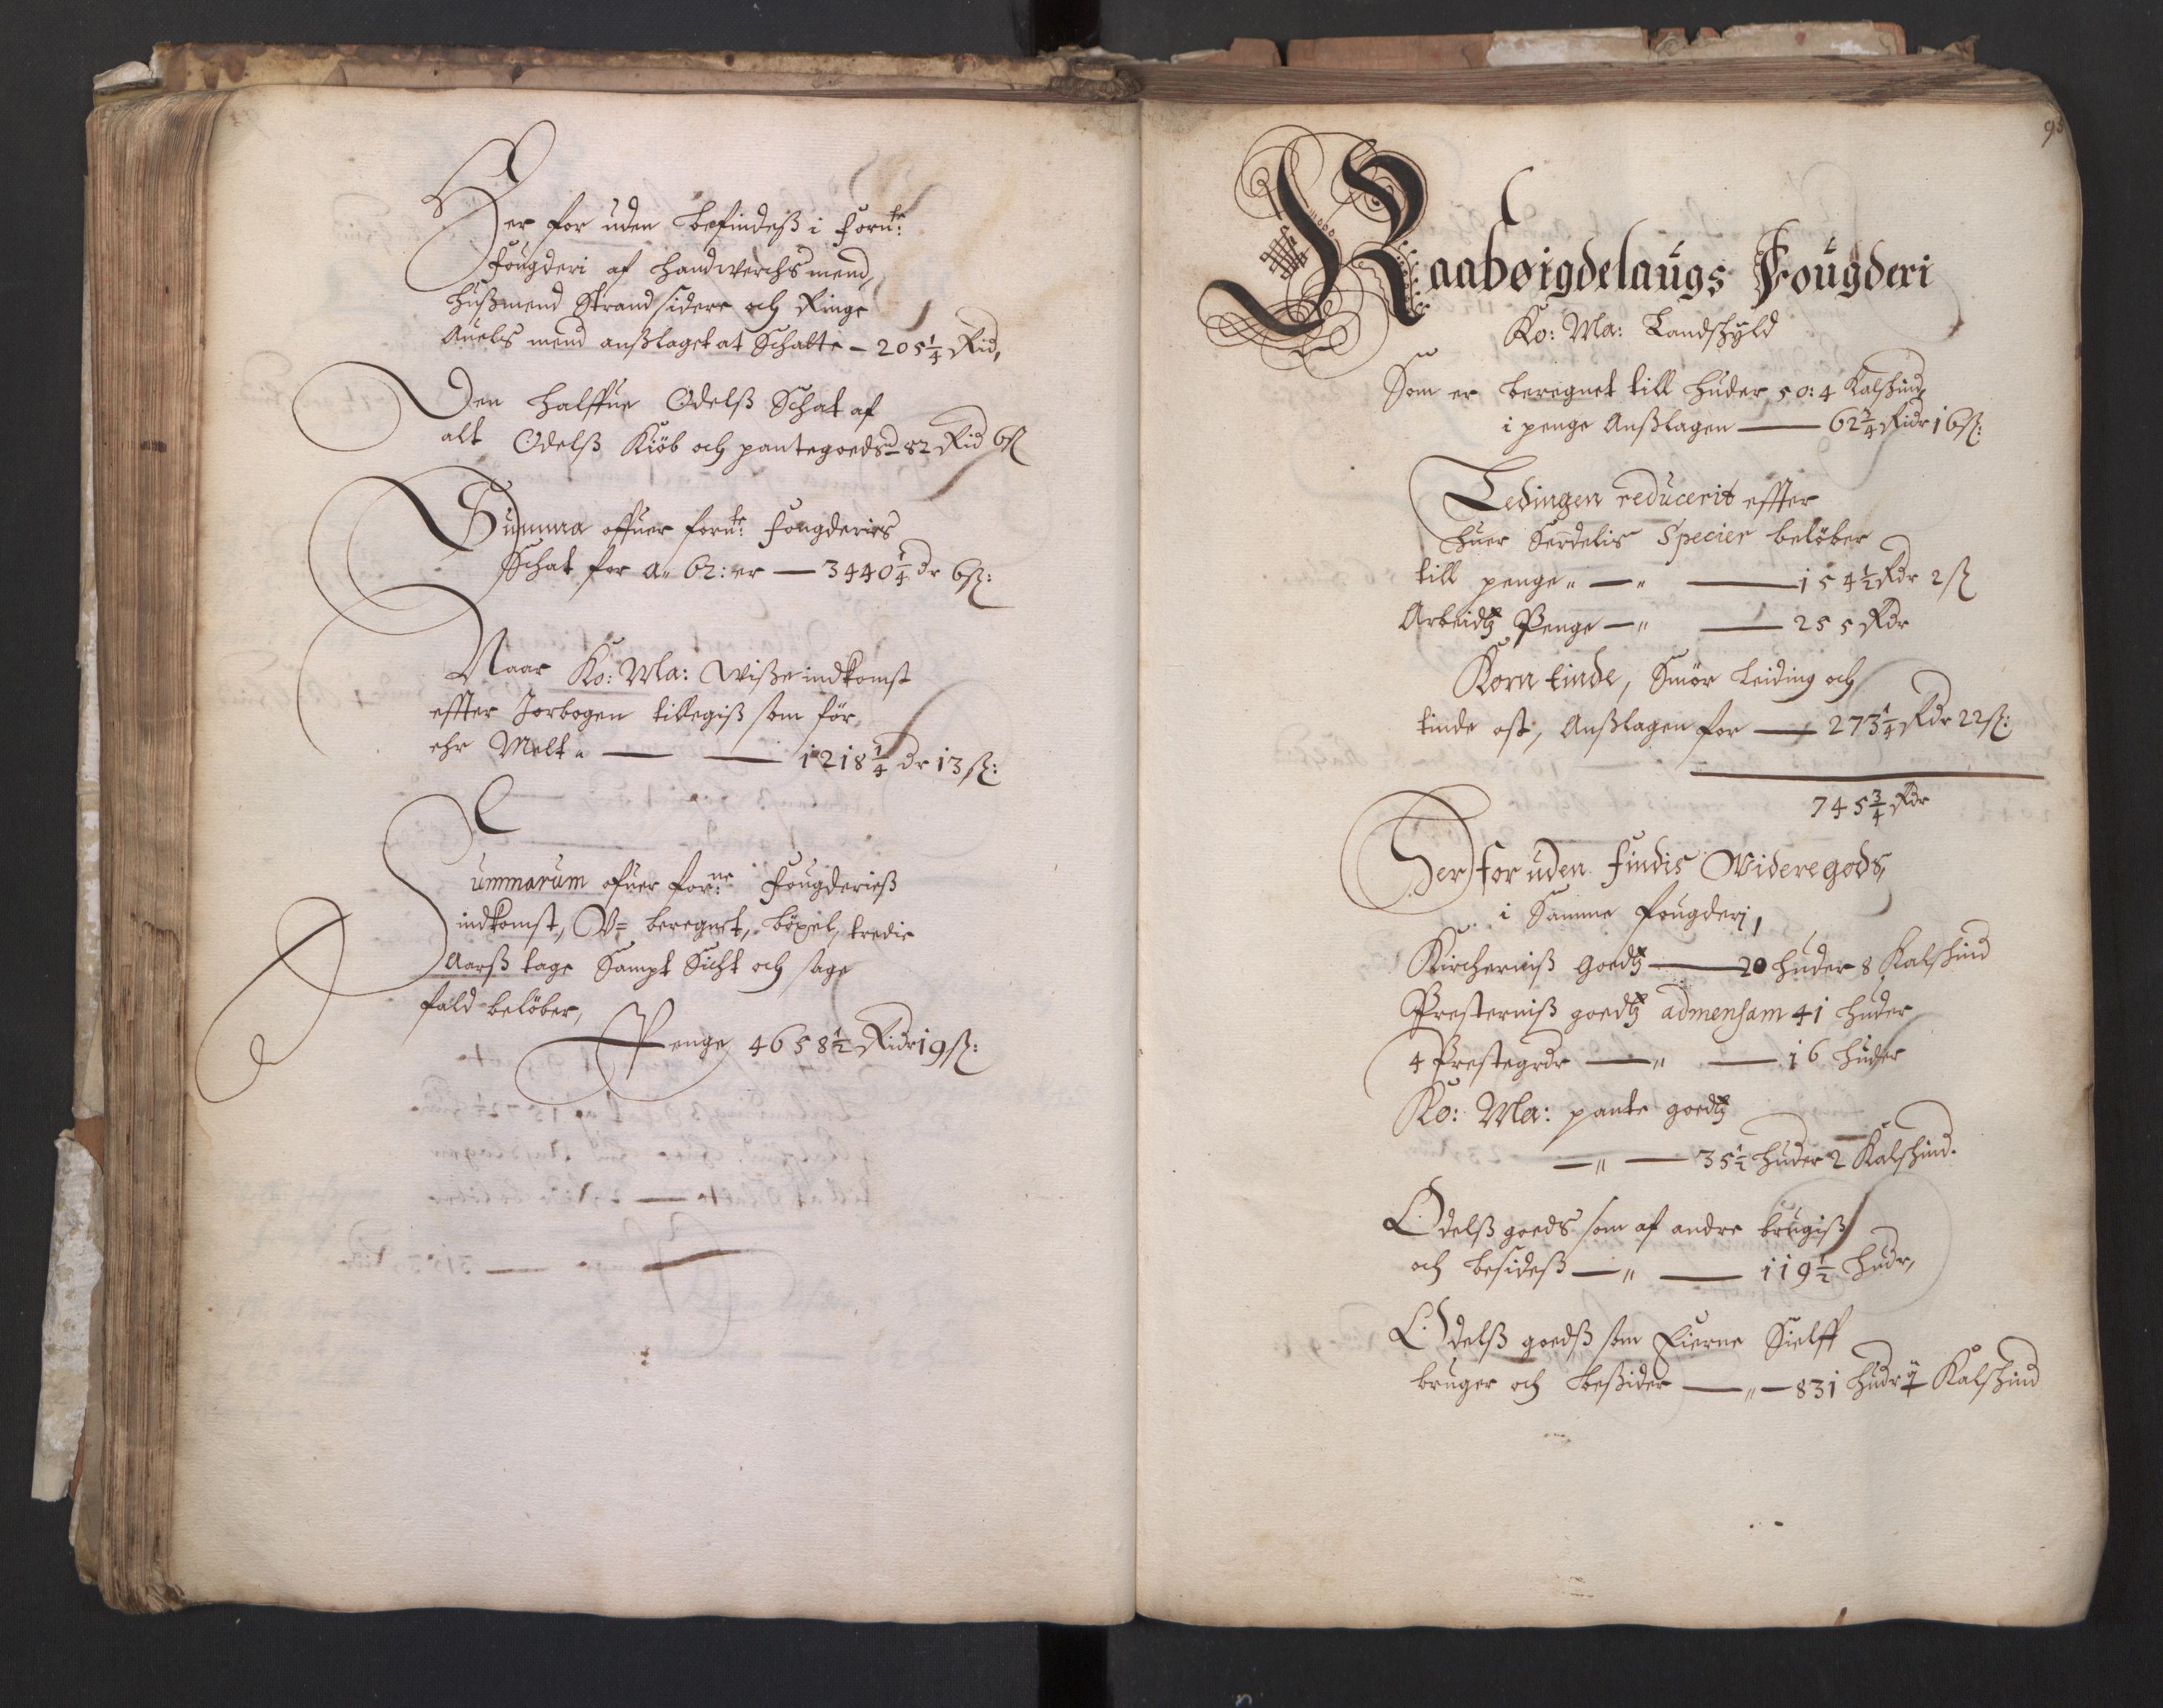 Her for uden befindeß i Forn:te
Fougderi af Handwerchsmend,
Hußmend Strandsidere och Ringe
Auels mend anßlaget at Schatte — 205 1/4 Rid,
Den halffue Odelß Schat af
alt Odelß Kiöb och pantegoeds — 82 Rid 6 ß
Summa offuer forn:te Fougderies
Schat for a.. 62: er — 3440 1/4 dr 6 ß:
Naar Ko: Ma: Wiße indkomst
effter Jorbogen tillegiß som för
ehr Melt .. — — 1218 1/4 dr 13 ß:
Summarum ofuer for:ne Fougderieß
indkomst, V= beregnet, böxel, tredie
Aarß tage Sampt Sicht och sage
fald belöber,
Penge 4658 1/2 Ridr 19 ß:
93
Raabøigdelaugs Fougderi
Ko: Ma: Landschyld
Som er beregnet till huder 50: 4 Kalskind,
i penge Anßlagen — 62 3/4 Ridr 16 ß:
Ledingen reducerit effter
huer Serdelis Specier belöber
till penge .. — " — 154 1/2 Rdr 2 ß
Arbeidtz Penge — " — 255 Rdr
Korn tinde, Smör Leiding och
tinde ost, Anßlagen for — 273 1/4 Rdr 22 ß:
745 3/4 Rdr
Her for uden findis Videre gods,
i Samme fougderj,
Kircherniß Goedtz — 20 huder 8 Kalskind
Presterniß goedtz admensam 41 huder
4 Prestegrdr — " — 16 huder
Ko: Ma: pante goedtz
— " — 35 1/2 huder 2 Kalskind.
Odelß goeds som af andre brugiß
och besideß — " — 119 1/2 hudr,
Odelß goedß som Eierne Sielff
bruger och beßider — " — 831 hudr Kalskind